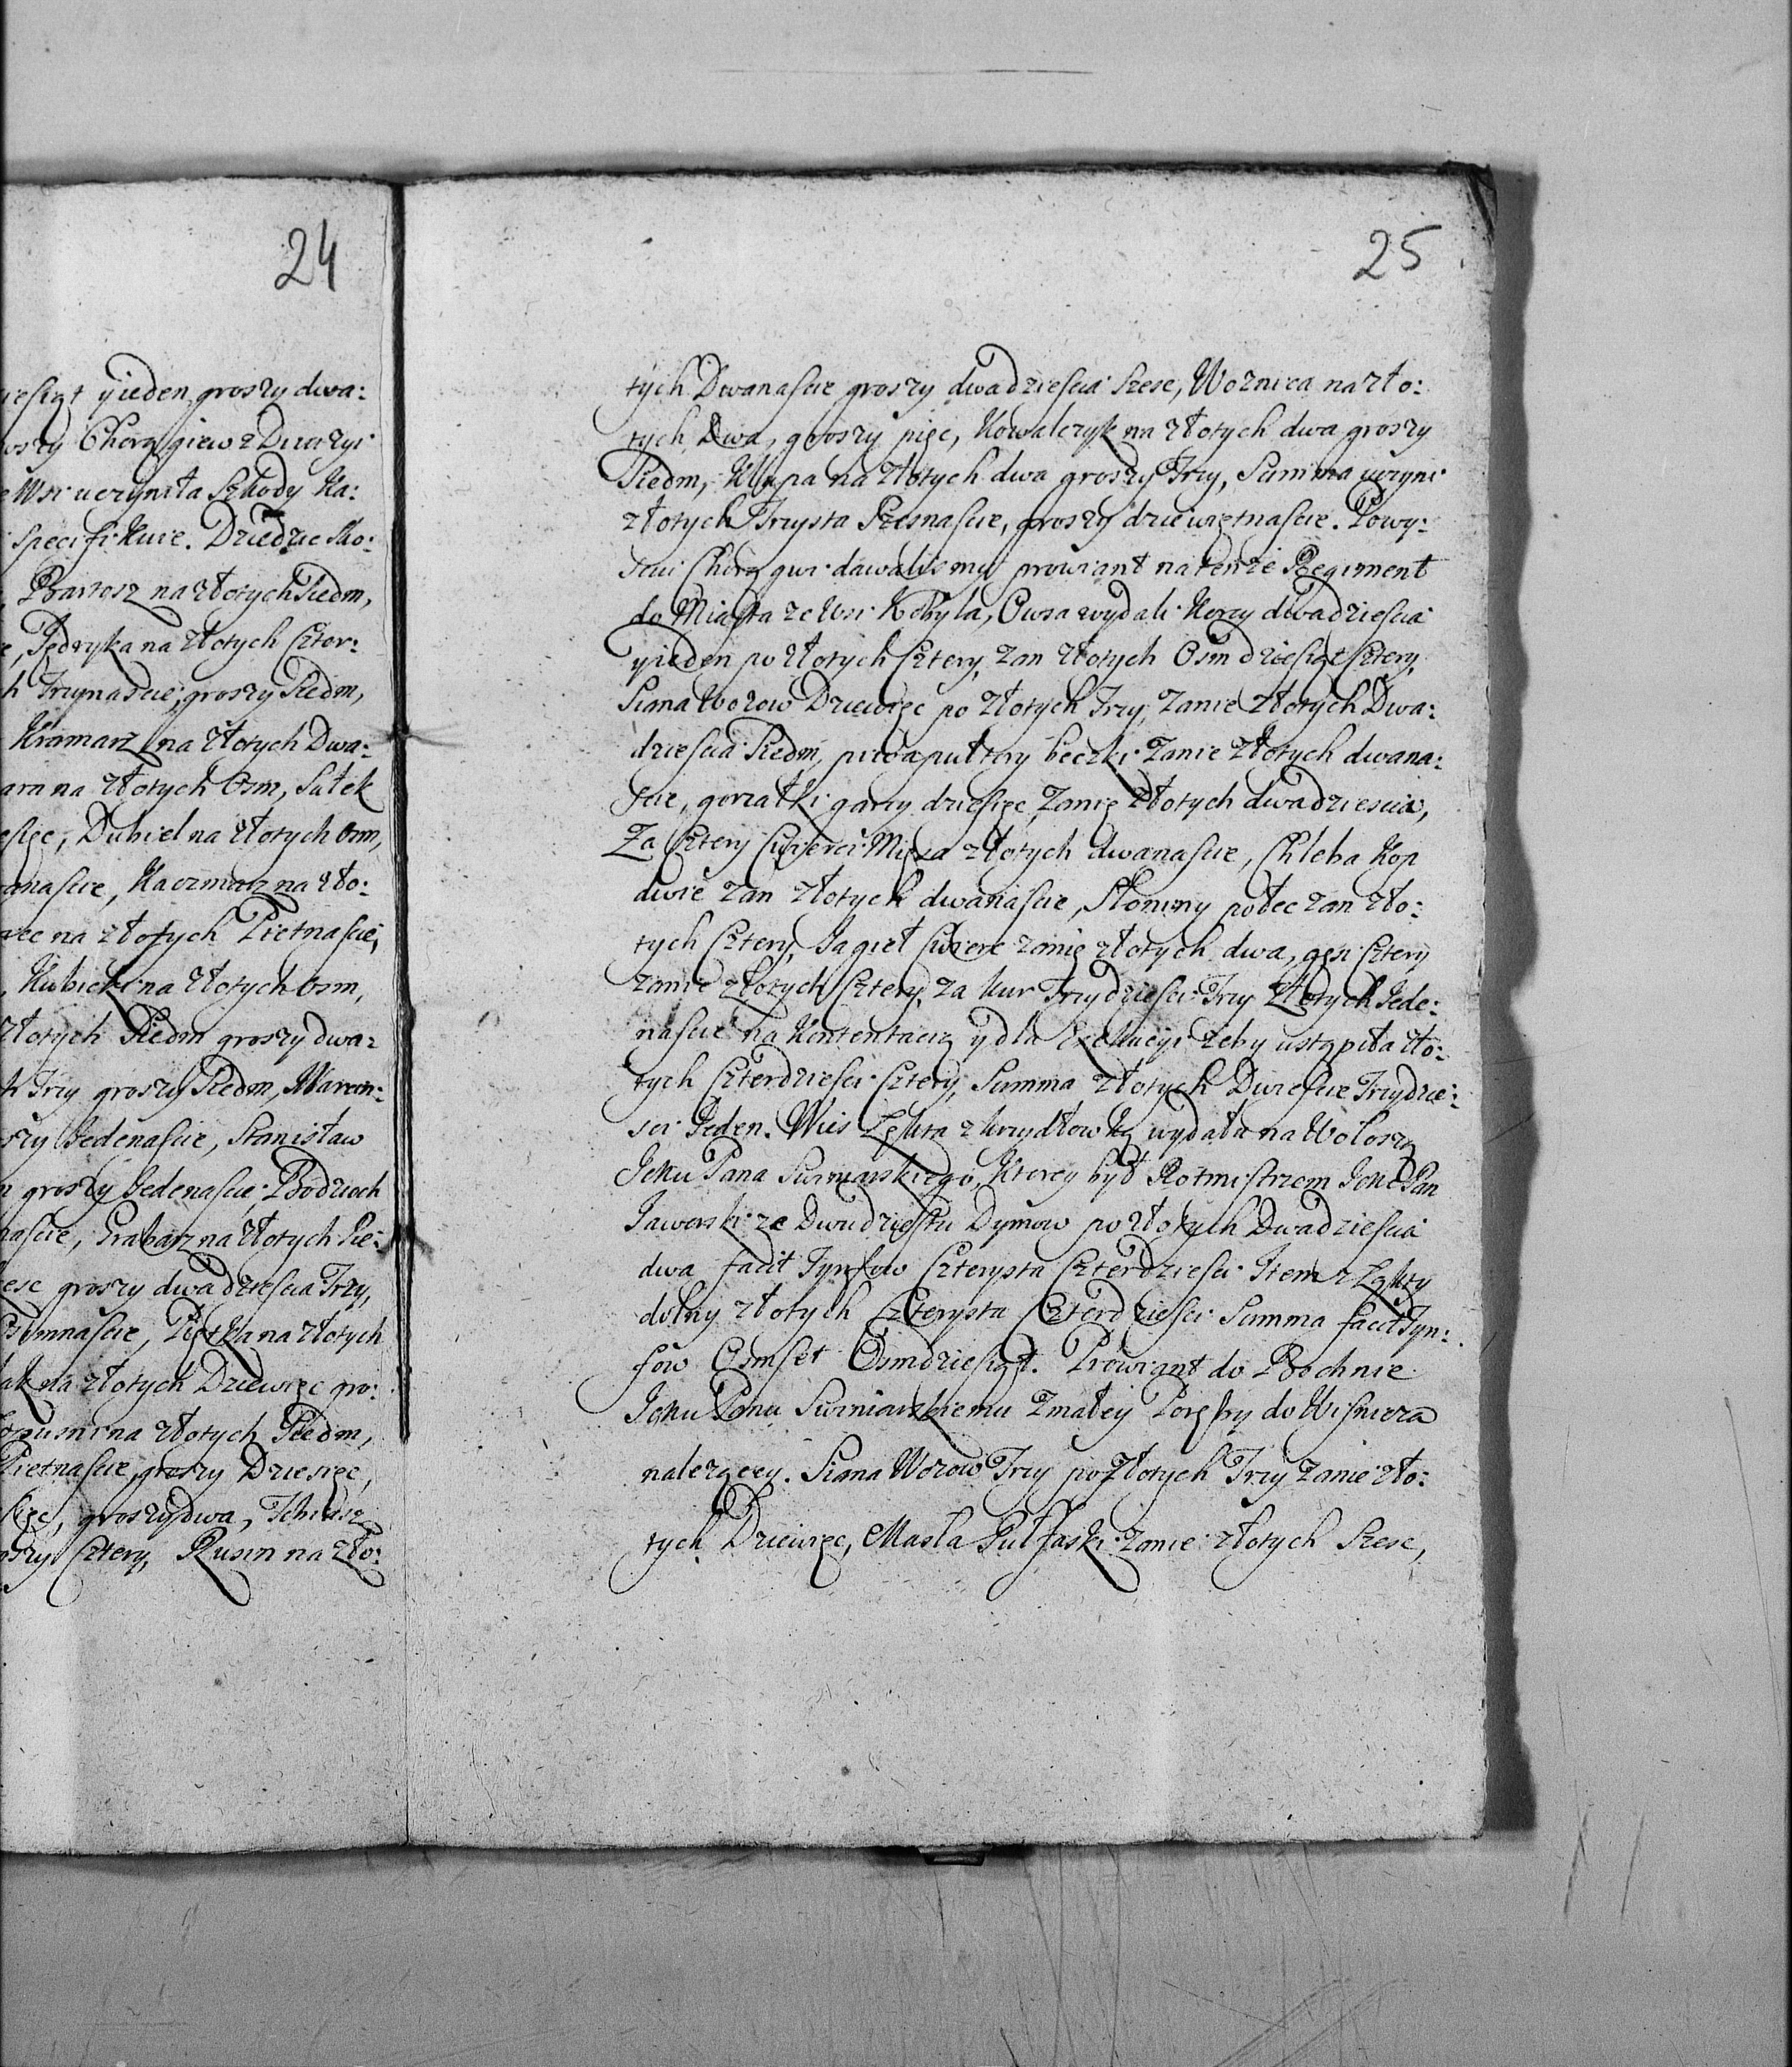 24
iesiąt yieden groszy dwa:
oszy Chorągiew z Duczyi
e Wsi uczyniła Szkody Ka:
specifikuie. Dziedzic Sko:
Bartosz na złotych Siedm,
Jędryka na złotych Czter:
h Trzynascie, groszy Siedm,
Kramarz na złotych Dwa:
ara na złotych Osm, Sałek
esięc, Dubiel na złotych Osm,
anascie, Kaczmarz na zło:
wec na złotych Pietnascie,
, Kubicki na złotych Osm,
złotych Siedm groszy dwa:
h Trzy groszy Siedm, Marcin:
szy Jedenascie, Stanisław
n groszy Jedenascie, Bodzioch
nascie, Grabarz na złotych Sie:
esc groszy dwadziescia Trzy,
Osmnascie, Piętka na złotych
ak na złotych Dziewięc gro:
na złotych Siedm,
Pietnascie, groszy Dziesięc,
sięc, groszy dwa,
oszy Cztery, Rusin na zło:
25
tych Dwanascie groszy dwadziescia Szesc, Woznica na zło:
tych Dwa, groszy pięc, Kowalczyk na złotych dwa groszy
Siedm, Klupa na złotych dwa groszy Trzy, Summa uczyni
złotych Trzysta Szesnascie, groszy dziewiętnascie. Powy:
sciu Chorągwi dawalismy prowiant na tenże Regiment
do Miasta ze Wsi Kobyla, Owsa wydali Korcy dwadziescia
yieden po złotych Cztery, zan złotych Osmdziesiąt Cztery,
Siana Wozow Dziewięc po złotych Trzy, zanie złotych Dwa:
dziescia Siedm, piwa pułtrzy beczki zanie złotych dwana:
scie, gorzałki garcy dziesięc, zanię złotych dwadziescia,
Za Cztery Cwierci Mięsa złotych dwanascie, Chleba Kop
dwie zan złotych dwanascie, Słoniny połec zan zło:
tych Cztery, Jagieł Cwierc zanię złotych dwa, gęsi Cztery
zanie złotych Cztery, za kur Trzydziesci Trzy złotych Jede:
nascie na Kontentacią y dla Exekucyi żeby ustąpiła zło:
tych Czterdziesci Cztery, Summa złotych Dwiescie Trzydzie:
sci Jeden. Wies Łękta z Krzydłowką wydała na Wołoszą
Jmci Pana Surmarskiego, Ktorey był Rotmistrzem Jmc Pan
Jaworski ze Dwudziestu Dymow po złotych Dwadziescia
dwa facit Tynfow Czterysta Czterdziesci Item z Łąkty
dolny złotych Czterysta Czterdziesci Summa facit Tyn:
fow Osmset Osmdziesiąt. Prowiant do Bochnie
Jmci Panu Surmiarskiemu z małey Poręby do Wisnicza
należącey. Siana Wozow Trzy po złotych Trzy zanie zło:
tych Dziewięc, Masla Puł faski zanie złotych Szesc,